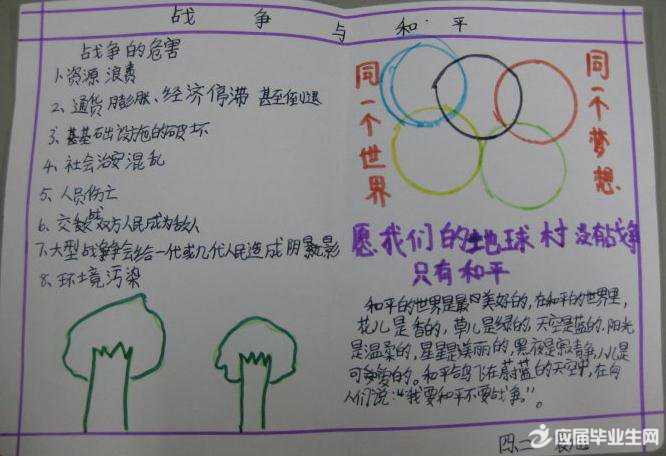 战争与和平
战争的危害
1、资源浪费
2、通货膨胀、经济停滞 甚至倒退
3、基基础设施的破坏
4、社会治安混乱
5、人员伤亡
6、交战双方人民成为敌人
7、大型战争会给一代或几代人民造成阴影
8、环境污染
同一个世界
同一个梦想
愿我们的地球村没有战争
只有和平
和平的世界是最美好的，在和平的世界里，
花儿是香的，草儿是绿的，天空是蓝的，阳光
是温柔的，星星是美丽的，黑夜是寂静，小儿是
可爱的。和平鸽飞在蔚蓝的天空中，在向
人们说：“我要和平不要战争。”
四二
应届毕业生网